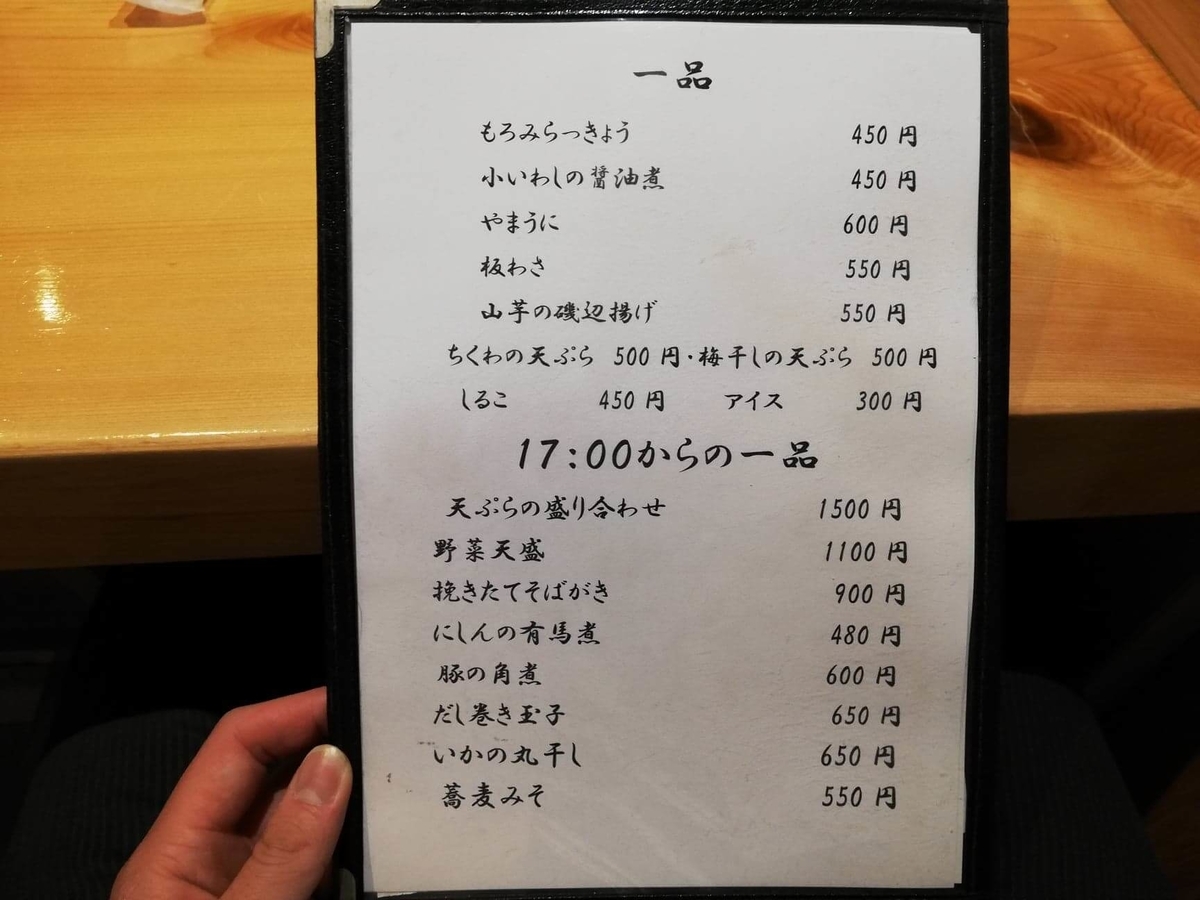 一品
もろみらっきょう 450 円
小いわしの醤油煮 450 円
やまうに 600 円
板わさ 550 円
山芋の磯辺揚げ 550 円
ちくわの天ぷら 500 円・梅干しの天ぷら 500 円
しるこ 450 円 アイス 300 円
17:00からの一品
天ぷらの盛り合わせ 1500 円
野菜天盛 1100 円
挽きたてそばがき 900 円
にしんの有馬煮 480 円
豚の角煮 600 円
だし巻き玉子 650 円
いかの丸干し 650 円
蕎麦みそ 550 円